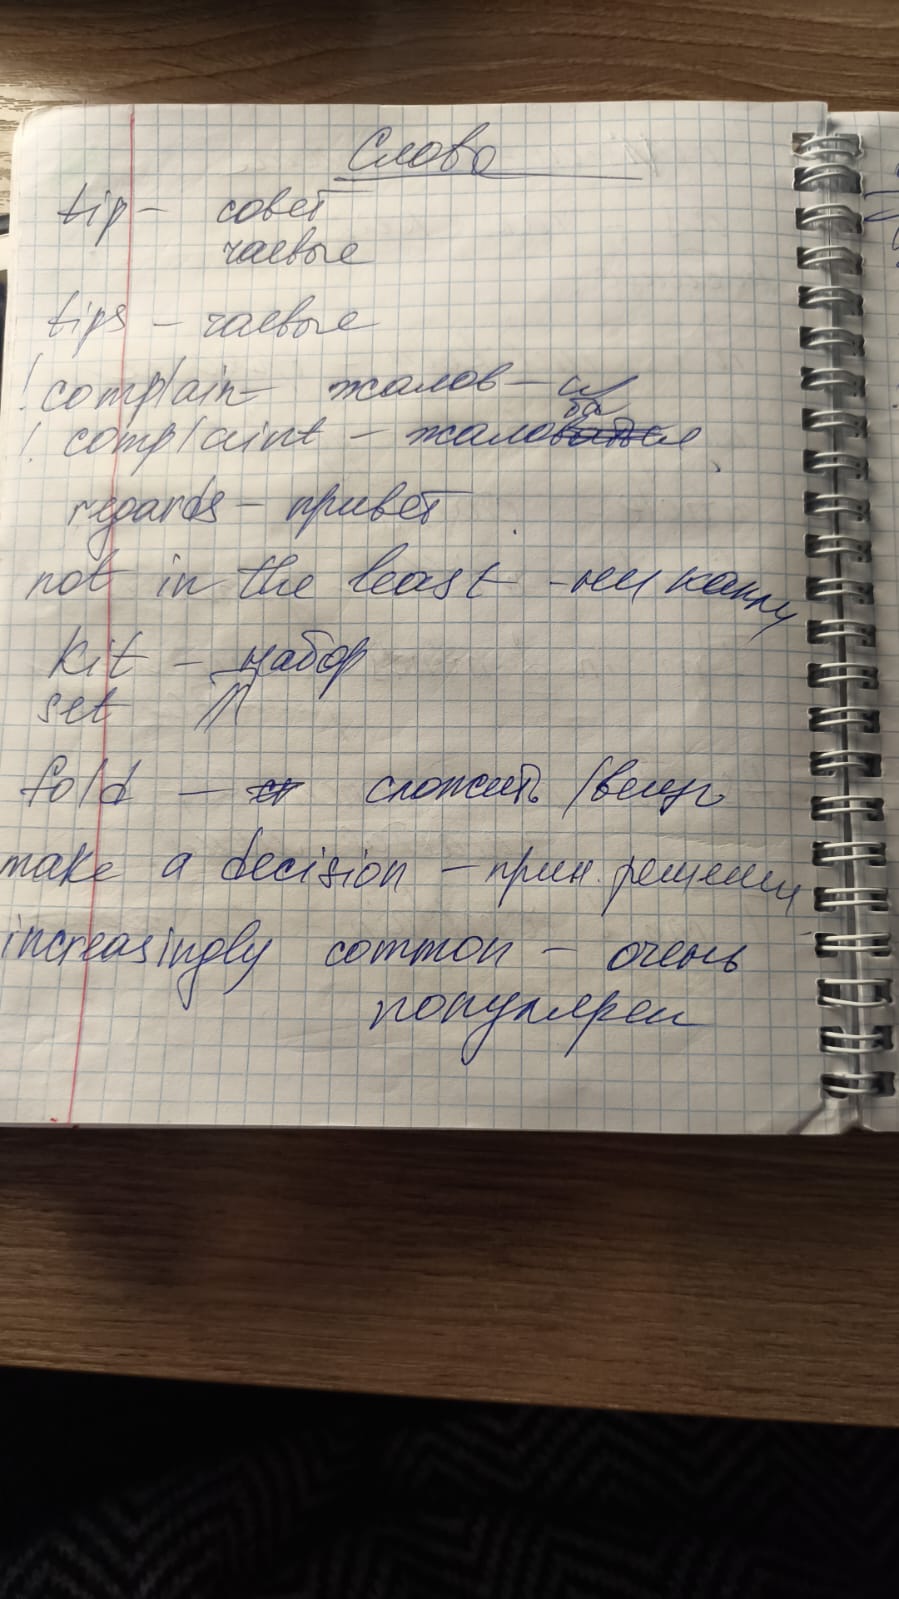 Слова
tip - совет
чаевые
tips - чаевые
! complain - жалов - ся
ба
! complaint - жаловаться
regards - привет
not in the least - ни капли
kit - набор
set
fold - ст сложить /вещь
make a decision - прин. решении
increasingly common - очень
популярен